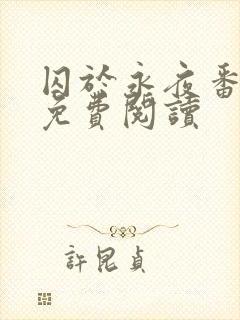 囚於永夜番
免費閱讀
許昆貞